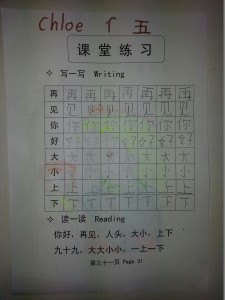 Chloe 个 五
课堂练习
写一写 Writing
再 再 再 再 再 再 再
见 见 见 见 见 见 见
你 你 你 你 你 你 你
好 好 好 好 好 好 好
大 大 大 大 大 大 大
小 小 小 小 小 小 小
上 上 上 上 上 上 上
下 下 下 下 下 下 下
读一读 Reading
你好，再见，人头，大小，上下
九十九，大大小小，一上一下
第三十一页 Page 31